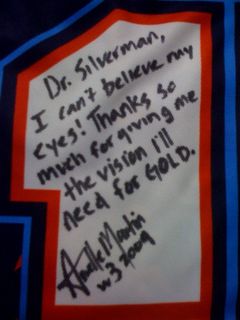 Dr. Silverman,
I can't believe my
eyes! Thanks so
much for giving me
the vision I'll
need for GOLD.
Martin